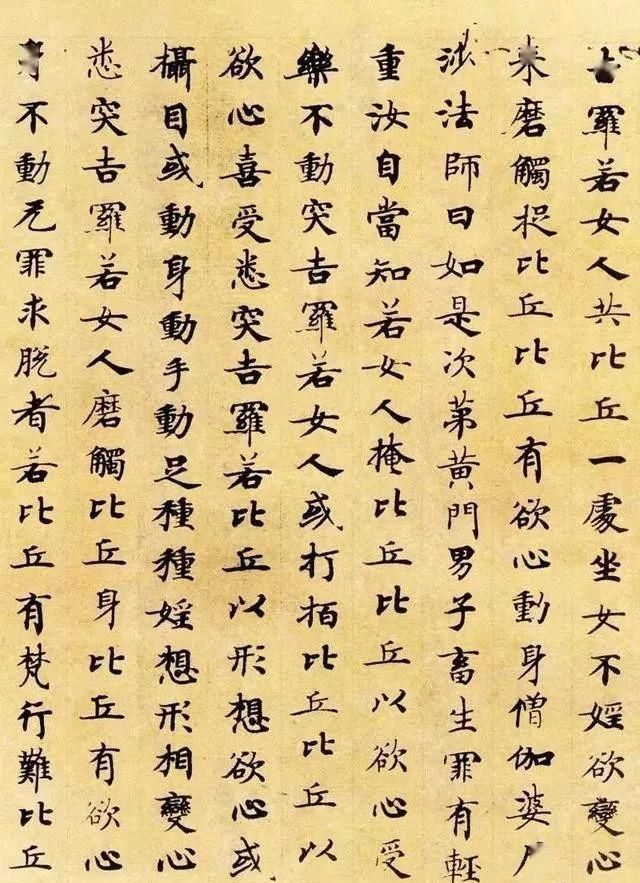 羅若女人共比丘一處坐女不婬欲變心
来磨觸捉比丘比丘有欲心動身僧伽婆
沙法師曰如是次第黄門男子畜生罪有輕
重汝自當知若女人掩比丘比丘以欲心受
樂不動突吉羅若女人或打拍比丘比丘以
欲心喜受悉突吉羅若比丘以形想欲心或
攝目或動身動手動足種種婬想形相變心
悉突吉羅若女人磨觸比丘身比丘有欲心
不動无罪求脱者若比丘有梵行難比丘